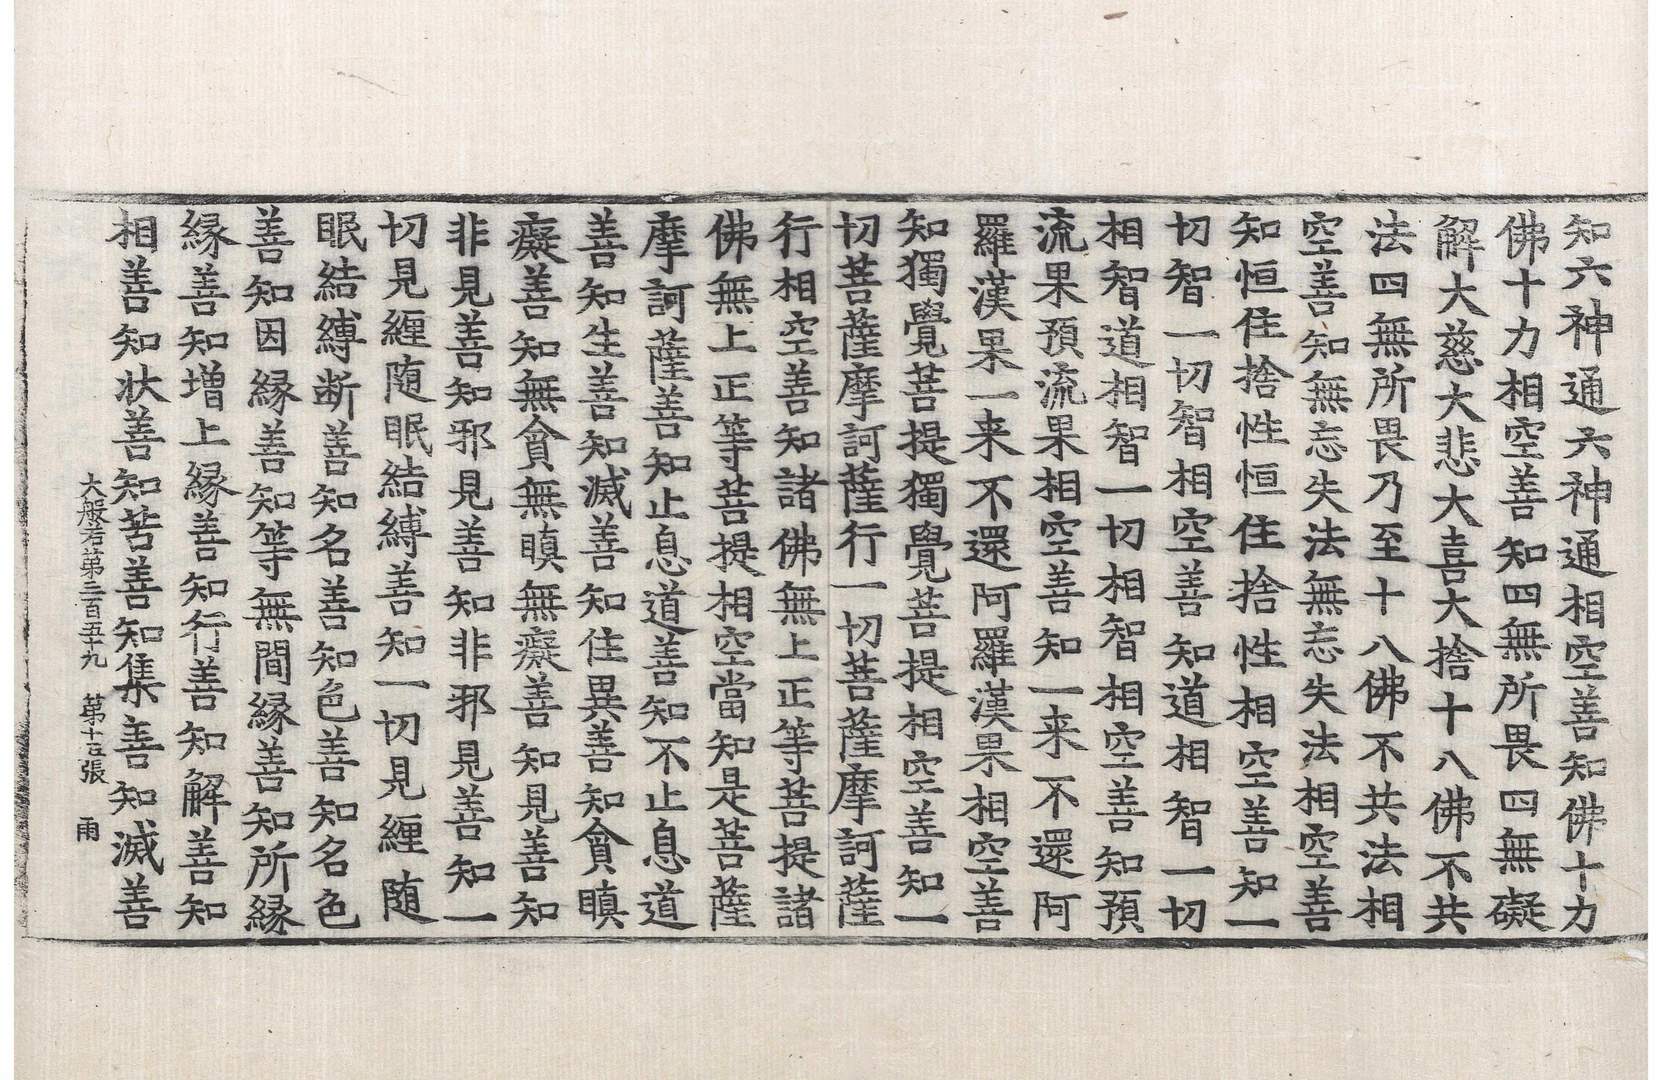 知六神通六神通相空善知佛十力
佛十力相空善知四無所畏四無礙
解大慈大悲大喜大捨十八佛不共
法四無所畏乃至十八佛不共法相
空善知無忘失法無忘失法相空善
知恒住捨性恒住捨性相空善知一
切智一切智相空善知道相智一切
相智道相智一切相智相空善知預
流果預流果相空善知一来不還阿
羅漢果一来不還阿羅漢果相空善
知獨覺菩提獨覺菩提相空善知一
切菩薩摩訶薩行一切菩薩摩訶薩
行相空善知諸佛無上正等菩提諸
佛無上正等菩提相空當知是菩薩
摩訶薩善知止息道善知不止息道
善知生善知滅善知住異善知貪瞋
癡善知無貪無瞋無癡善知見善知
非見善知邪見善知非邪見善知一
切見纏随眠結縛善知一切見纏随
眠結縛断善知名善知色善知名色
善知因縁善知等無間縁善知所縁
縁善知増上縁善知行善知解善知
相善知状善知苦善知集善知滅善
大般若第三百五十九 第十五張 雨